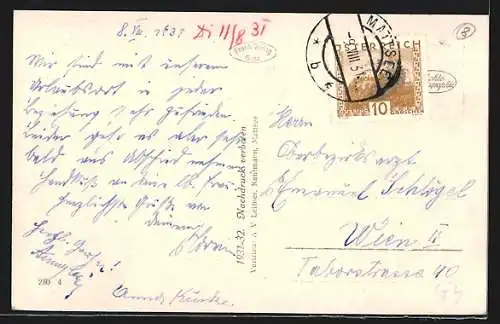 8. VIII. 1931
11/8 31
Wir sind mit unserem
Urlaubsort in jeder
Beziehung sehr zufrieden.
Leider geht es aber sehr
bald ans Abschied nehmen.
Handkuß an deine lb. Frau
herzlichste Grüße von
deinem
Herzl. Grüße!
280 4
1931-32. Nachdruck verboten
Verlag: J. V. Leitner, Kaufmann, Mattsee
MATTSEE
8.VIII.31
* b *
ÖSTERREICH
10 GROSCHEN
Herrn
Oberbezirksarzt
Emanuel Schlögel
Wien II
Taborstrasse 40
8